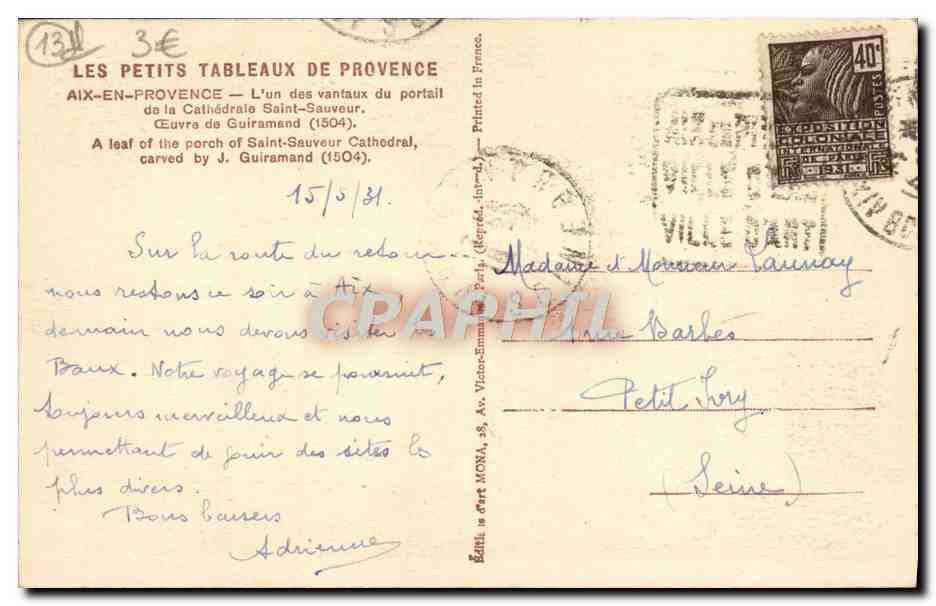 13
3€
LES PETITS TABLEAUX DE PROVENCE
AIX-EN-PROVENCE — L'un des vantaux du portail
de la Cathédrale Saint-Sauveur.
Œuvre de Guiramand (1504).
A leaf of the porch of Saint-Sauveur Cathedral,
carved by J. Guiramand (1504).
15/5/31.
Sur la route du retour
nous restons ce soir à Aix,
demain nous devons visiter les
Baux. Notre voyage se poursuit,
toujours merveilleux et nous
permettant de jouir des sites les
plus divers.
Bons baisers
Adrienne
Editions d'art MONA, 28, Av. Victor-Emmanuel, Paris. (Reprod. Interd.) — Printed in France.
40c
POSTES
EXPOSITION
COLONIALE
INTERNATIONALE
DE PARIS
1931
VILLE D'ART
Madame et Monsieur Launay
rue Barbès
Petit Ivry
(Seine)
CPAPHIL